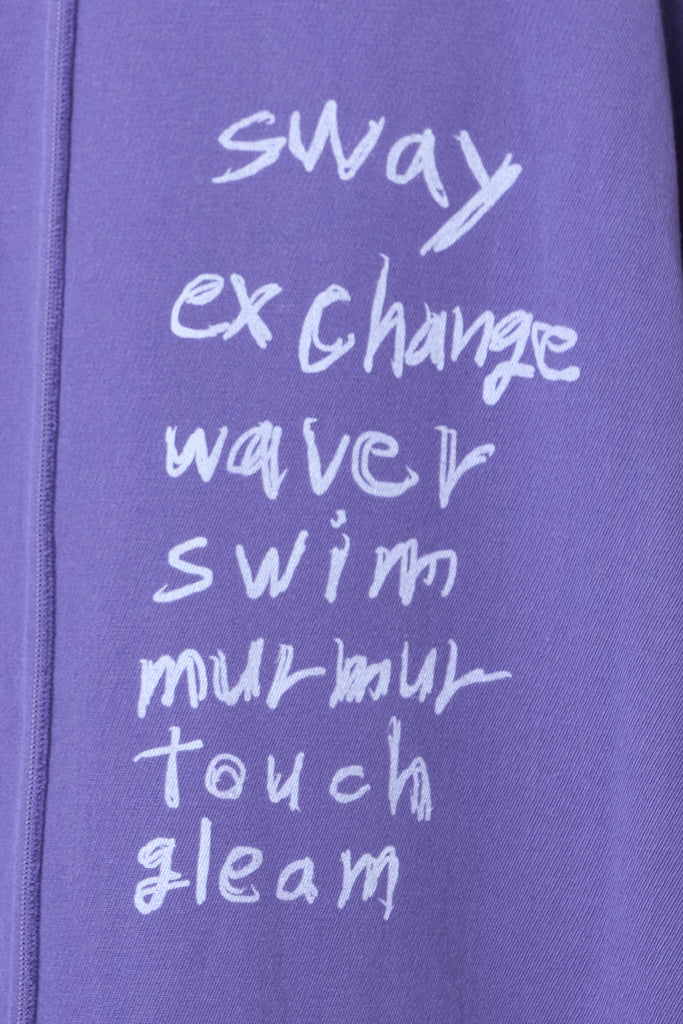 sway
exchange
waver
swim
murmur
touch
gleam